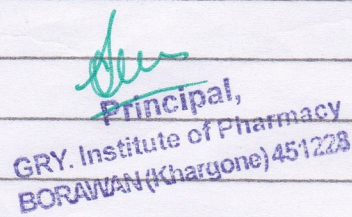 Principal,
GRY. Institute of Pharmacy
BORAWAN (Khargone) 451228